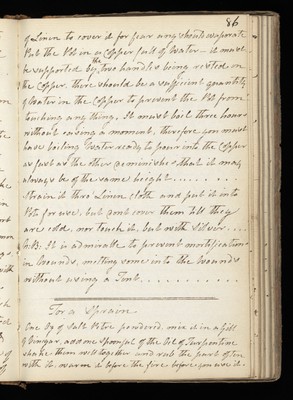 86
of Linen to cover it for fear any should evaporate
Put the Pot in a Copper full of Water – it must
be supported by the two handles being rested on
the Copper, there should be a sufficient quantity
of Water in the Copper to prevent the Pot from
touching any thing. It must boil three hours
without ceasing a moment, therefore you must
have boiling Water ready to pour into the Copper
as fast as the other deminishes that it may
always be of the same height
Strain it thro' Linen Cloth and put it into
Pots for use, but dont cover them till they
are cold, nor touch it, but with Silver
NB: It is admirable to prevent mortification
in Wounds, melting some into the Wounds
without using a Tent
For a Sprain
One Oz of Salt Petre powdered, mix it in a Gill
of Vinegar, add one Spoonful of the Oil of Turpentine
shake them well together and rub the part often
with it. warm it before the fire before you use it.